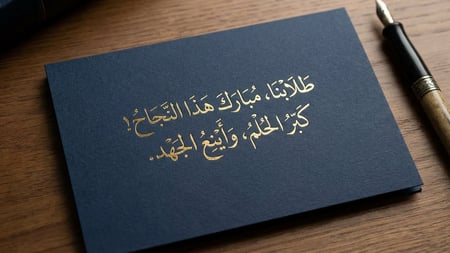 طُلَابُنَا، مُبَارَكَ هَذَا النَّجَاحُ!
كَبُرَ الحُلْمُ، وَأَيْنَعُ الجَهْدِ.